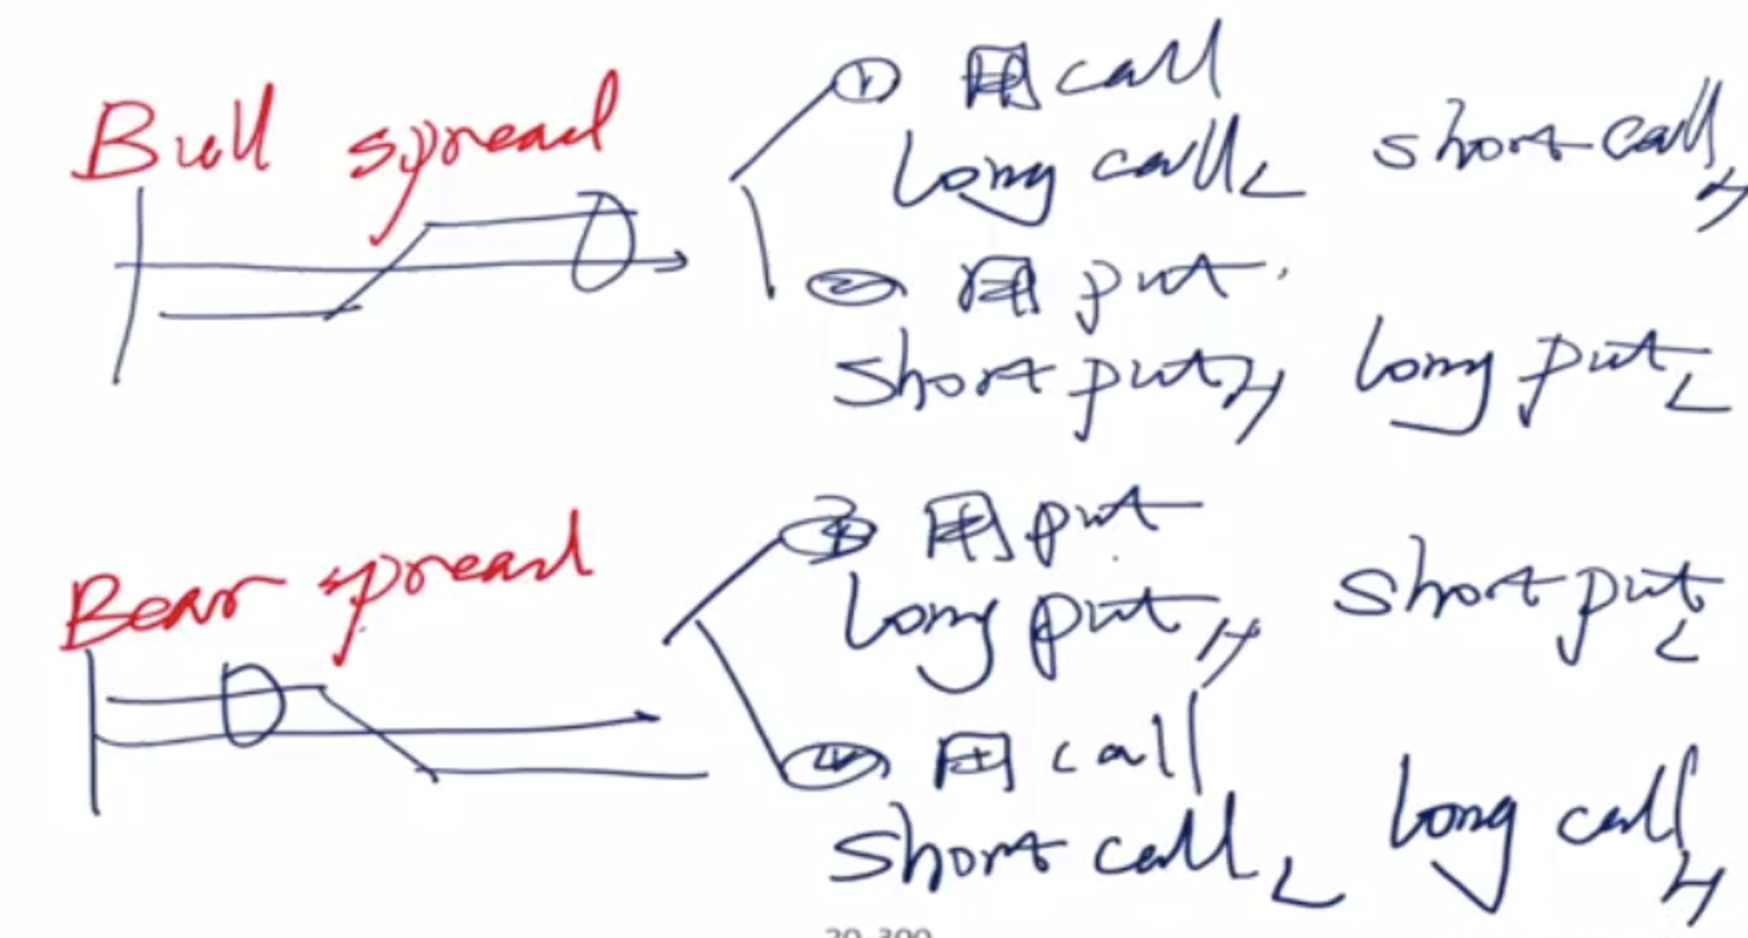 Bull spread
① 用 call
long call L short call H
② 用 put
short put H long put L
Bear spread
③ 用 put
long put H short put L
④ 用 call
short call L long call H